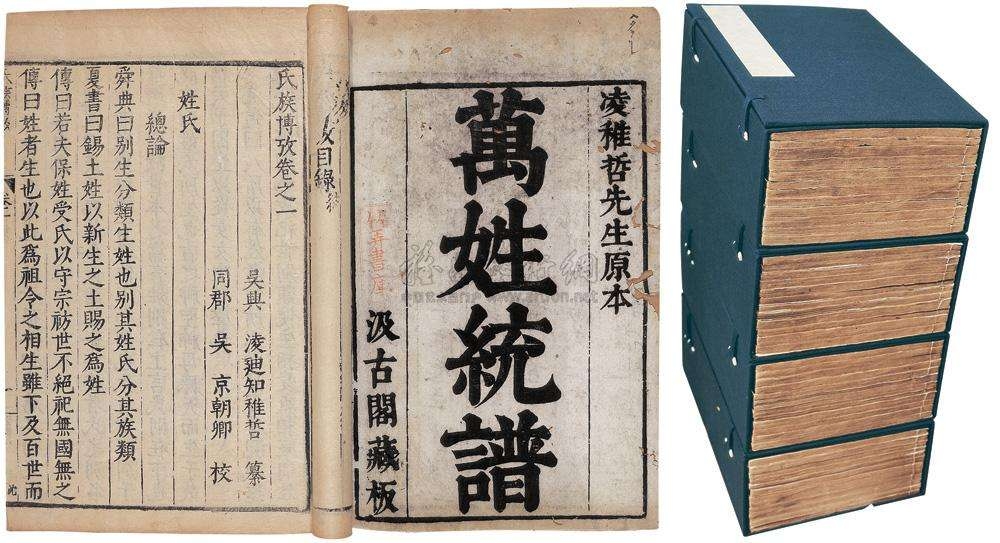 凌稚哲先生原本
萬姓統譜
汲古閣藏板
目錄
氏族博攷卷之一
吳興 淩廸知稚哲 纂
同郡 吳 京朝卿 校
姓氏
總論
舜典曰別生分類生姓也別其姓氏分其族類
夏書曰錫土姓以新生之土賜之為姓
傳曰若夫保姓受氏以守宗祊世不絕祀無國無之
傳曰姓者生也以此為祖令之相生雖下及百世而